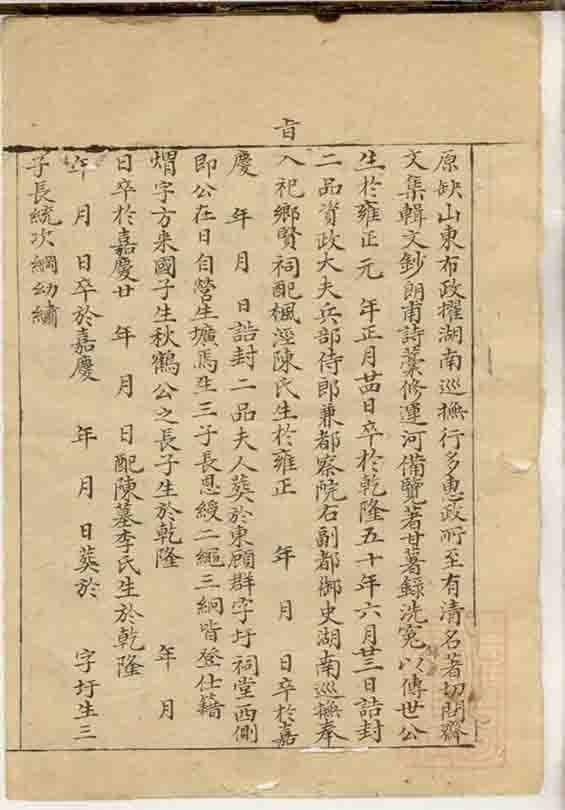 原缺山東布政擢湖南巡撫行多惠政所至有清名著切問齋
文集輯文鈔朗甫詩藁修運河備覽著甘薯錄洗寃以傳世公
生於雍正元　年正月廿四日卒於乾隆五十年六月廿三日誥封
二品資政大夫兵部侍郎兼都察院右副都御史湖南巡撫奉
旨
入祀鄉賢祠配楓涇陳氏生於雍正　年　月　日卒於嘉
慶　年　月　日誥封二品夫人葬於東顧群字圩祠堂西側
即公在日自營生壙焉生三子長恩綬二繩三絅皆登仕籍
焆字方來國子生秋鶴公之長子生於乾隆　年　月
日卒於嘉慶廿　年　月　日配陳墓李氏生於乾隆
年　月　日卒於嘉慶　年　月　日葬於　字圩生三
子長統次綱幼繡